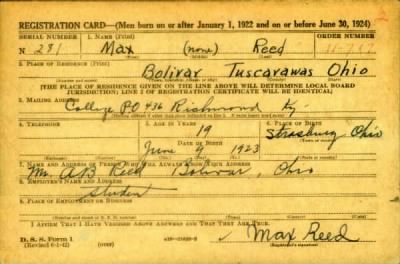 REGISTRATION CARD—(Men born on or after January 1, 1922 and on or before June 30, 1924)
SERIAL NUMBER 1. NAME (Print) ORDER NUMBER
N 281 Max (none) Reed 11-747
2. PLACE OF RESIDENCE (Print)
Bolivar Tuscarawas Ohio
[THE PLACE OF RESIDENCE GIVEN ON THE LINE ABOVE WILL DETERMINE LOCAL BOARD
JURISDICTION; LINE 2 OF REGISTRATION CERTIFICATE WILL BE IDENTICAL]
3. MAILING ADDRESS
College PO 436 Richmond Ky.
4. TELEPHONE 5. AGE IN YEARS 6. PLACE OF BIRTH
19 Strasburg
DATE OF BIRTH
June 4 1923 Ohio
7. NAME AND ADDRESS OF PERSON WHO WILL ALWAYS KNOW YOUR ADDRESS
Mr. AB Reed Bolivar, Ohio
8. EMPLOYER'S NAME AND ADDRESS
Student
9. PLACE OF EMPLOYMENT OR BUSINESS
I AFFIRM THAT I HAVE VERIFIED ABOVE ANSWERS AND THAT THEY ARE TRUE.
D. S. S. Form 1
(Revised 6-1-42) (over)
Max Reed
(Registrant's signature)